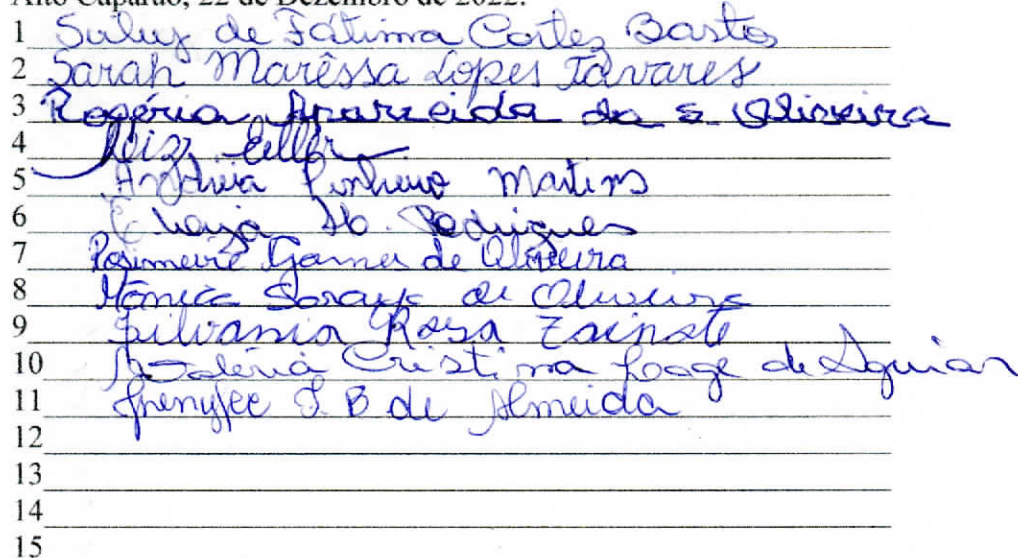 Alto Caparaó, 22 de Dezembro de 2022.
1 Suluy de Fátima Cortes Bastos
2 Sarah Marêssa Lopes Tavares
3 Rogéria Aparecida da S Oliveira
4 Eller
5 Andréia Pinheiro Martins
6 Rodrigues
7 Rosimeire Gomes de Oliveira
8 Mônica Soraya de Oliveira
9 Silvania Rosa
10 Valéria Cristina de Aguiar
11 B de Almeida
12
13
14
15